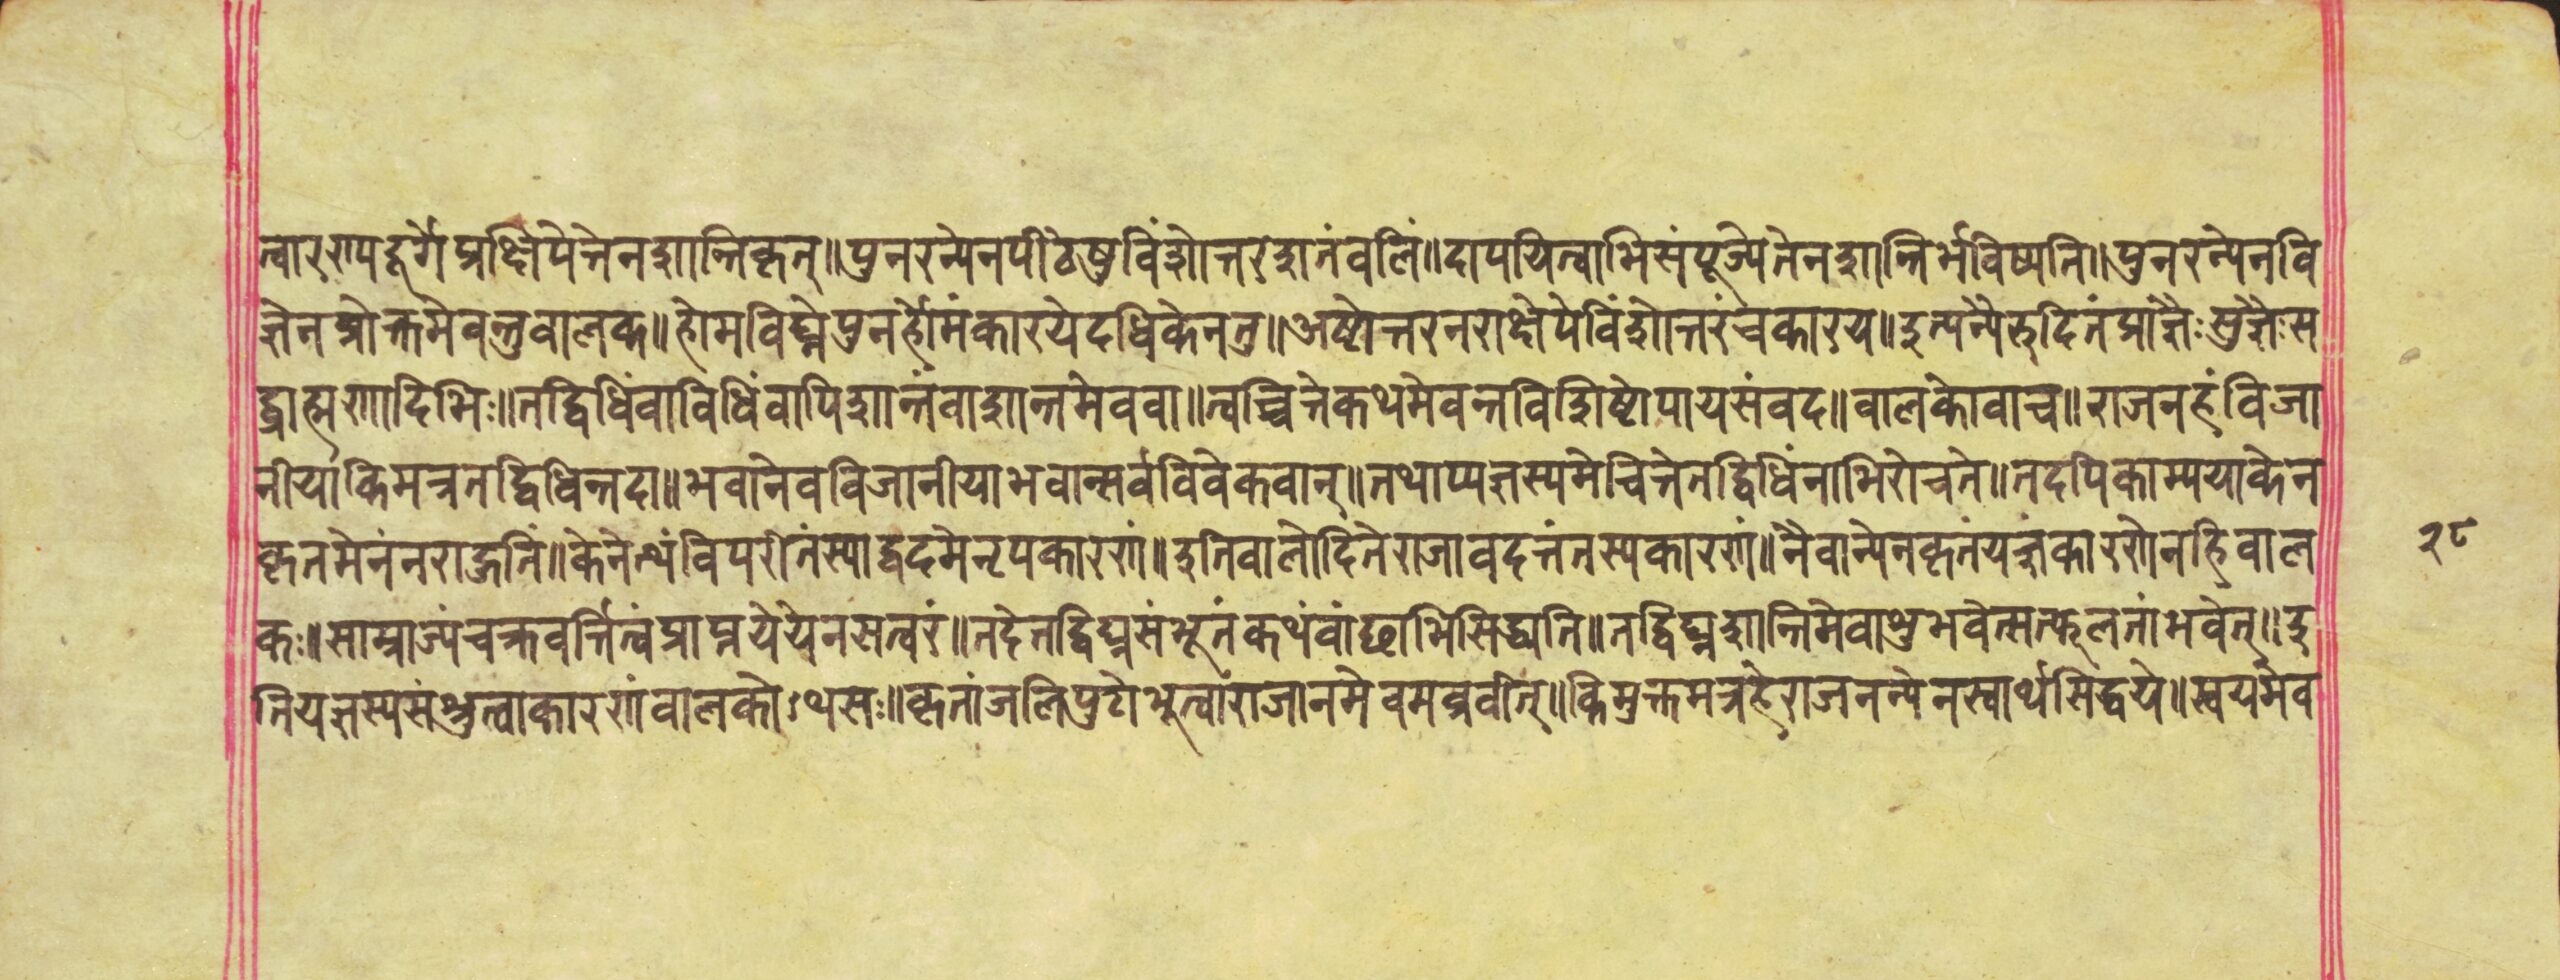 त्वारण्यदूर्गे प्रक्षिपेत्तेनशान्तिकृत्॥पुनरन्येनपीठेषुविंशोत्तरशतंवलिं॥दापयित्वाभिसंपूज्यतेनशान्तिर्भविष्यति॥पुनरन्येनवि
ज्ञेनप्रोक्तमेवन्तुवालक॥होमविघ्नेपुनर्होमंकारयेदधिकेनतु॥अष्टोत्तरनराक्षेपेविंशोत्तरंचकारय॥इत्यन्यैरुदितंप्राज्ञैःसुज्ञैःस
द्ब्राह्मणादिभिः॥तद्विधिंवाविधिंवापिशान्तंवाशान्तमेववा॥त्वच्चित्तेकथमेवन्तविशिष्टोपायसंवद॥वालकोवाच॥राजनहंविजा
नीयांकिमत्रतद्विधिन्तदा॥भवानेवविजानीयाभवान्सर्वविवेकवान्॥तथाप्यज्ञस्यमेचित्तेतद्विधिंनाभिरोचते॥तदपिकाम्ययाकेन
कृतमेनंनराहुतिं॥केनेत्थंविपरीतंस्याद्वदमेनृपकारणं॥इतिवालोदितेराजावदत्तंतस्यकारणं॥नैवान्येनकृतंयज्ञंकारणेनहिवाल
कः॥साम्राज्यंचक्रवर्त्तित्वंप्राप्नयेयेनसत्वरं॥तदेतद्विघ्नसंभूतंकथंवांछाभिसिद्ध्यति॥तद्विघ्नशान्तिमेवाशुभवेत्सत्फलतांभवेत्॥इ
तियज्ञस्यसंश्रुत्वाकारणंवालकोऽथसः॥कृतांजलिपुटोभूत्वाराजानमेवमब्रवीत्॥किमुक्तमत्रहेराजनन्येनस्वार्थसिद्धये॥स्वयमेव
२८